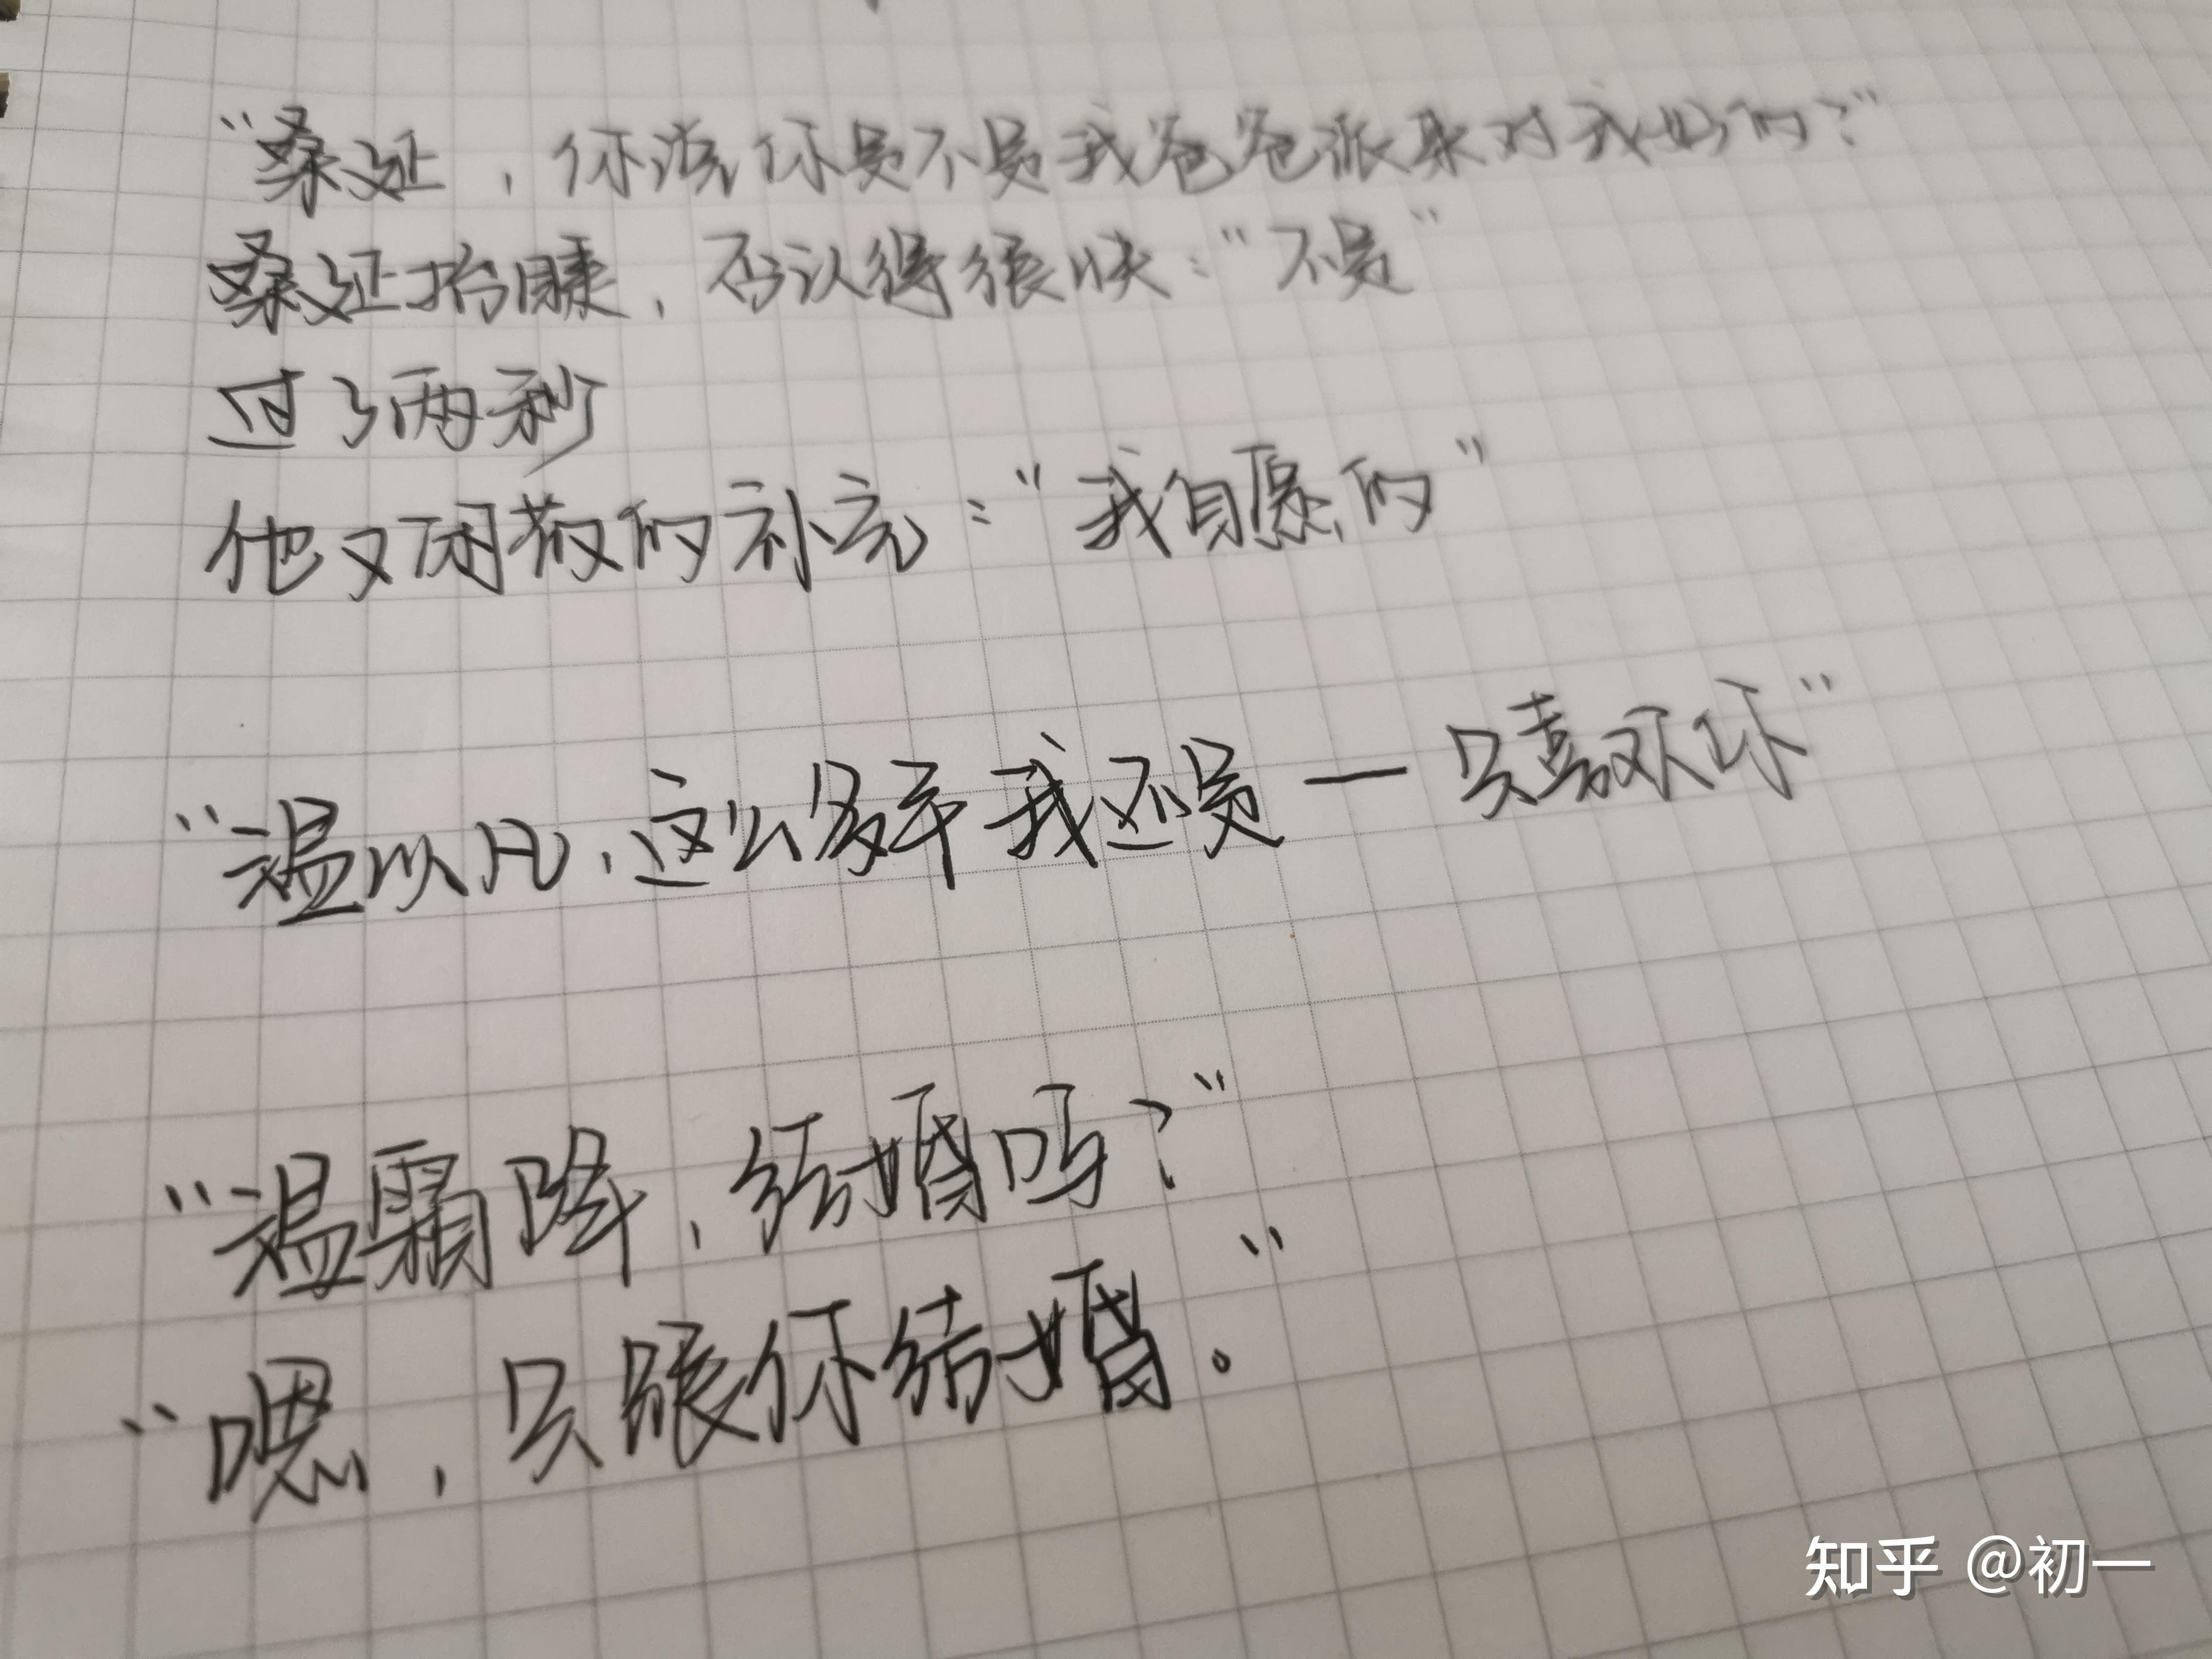 “桑延，你说你是不是我爸爸派来对我好的？”
桑延抬睫，否认得很快：“不是”
过了两秒
他又闲散的补充：“我自愿的”
“温以凡，这么多年我还是一只喜欢你”
“温霜降，结婚吗？”
“嗯，只跟你结婚。”
知乎 @初一